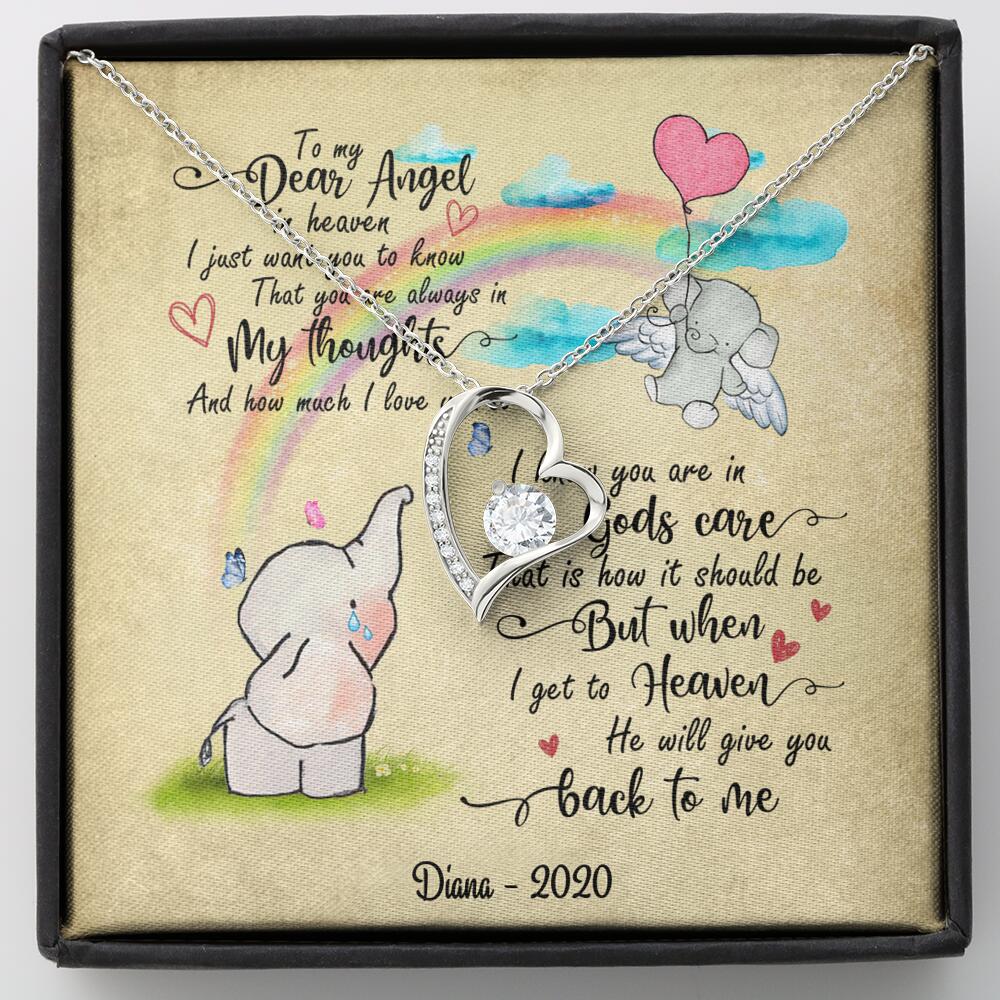 To my
Dear Angel
in heaven
I just want you to know
That you are always in
My thoughts
And how much I love
I know you are in
Gods care
That is how it should be
But when
I get to Heaven
He will give you
back to me
Diana - 2020